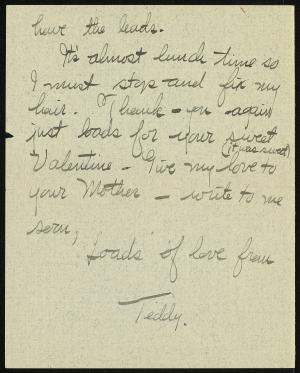 have the leads.
It's almost lunch time so
I must stop and fix my
hair. Thank-you again
just loads for your sweet
(it was sweet)
Valentine - Give my love to
your Mother - write to me
soon,
Loads of love from
Teddy.